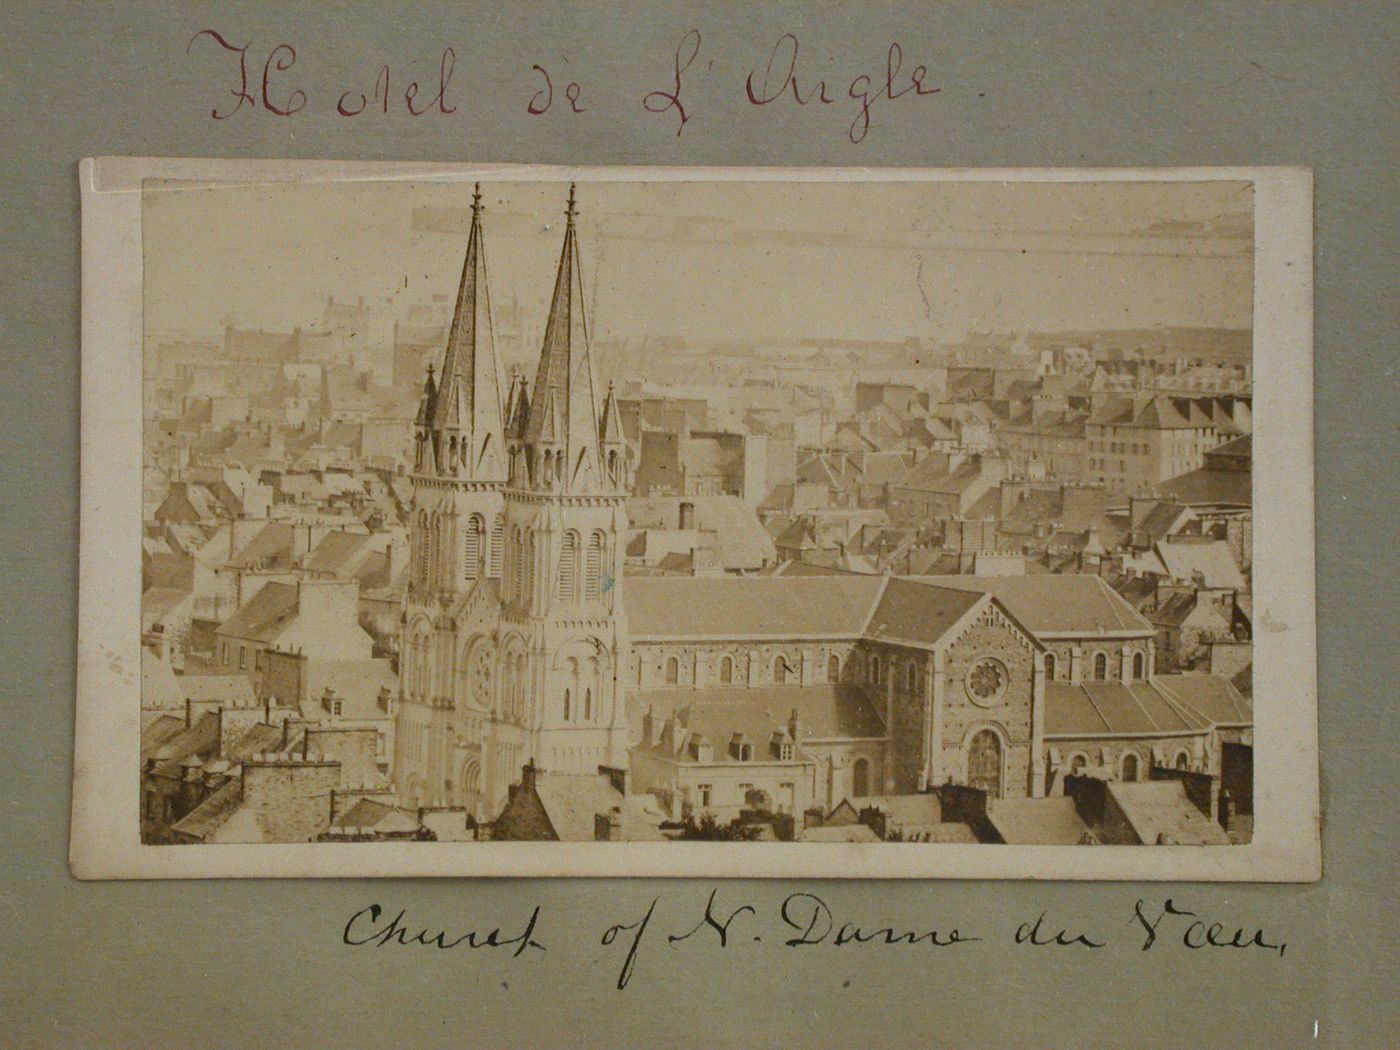 Hotel de L'Aigle.
Church of N. Dame du Vœu,